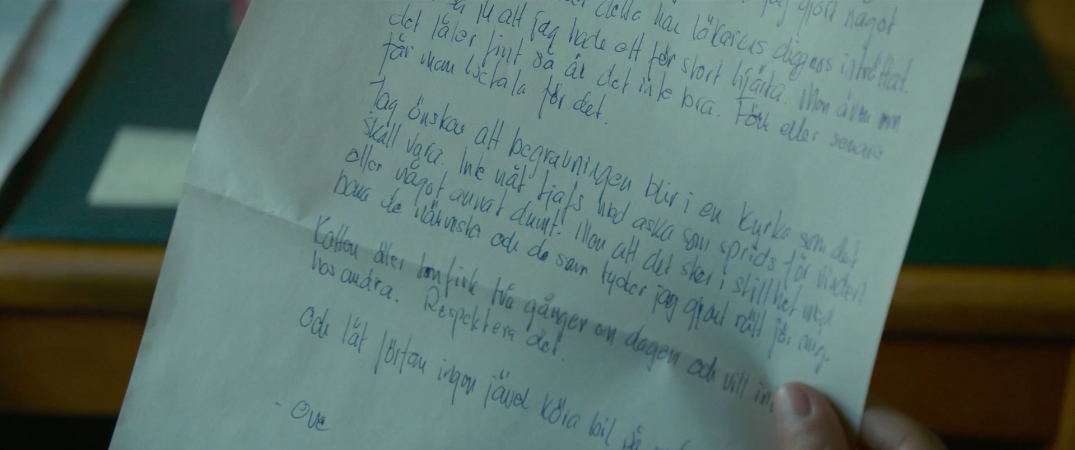 jag gjort något
detta har läkarens diagnos inträffat.
ju att jag hade ett för stort hjärta. Men även om
det låter fint så är det inte bra. Förr eller senare
får man betala för det.
Jag önskar att begravningen blir i en kyrka som det
skall vara. Inte nåt tjafs med aska som sprids för vinden
eller något annat dumt. Men att det sker i stillhet med
bara de närmsta och de som tycker jag gjort rätt för mig.
Katten äter tonfisk två gånger om dagen och vill in
hos andra. Respektera det.
Och låt förfan ingen jävel köra bil på
- Ove